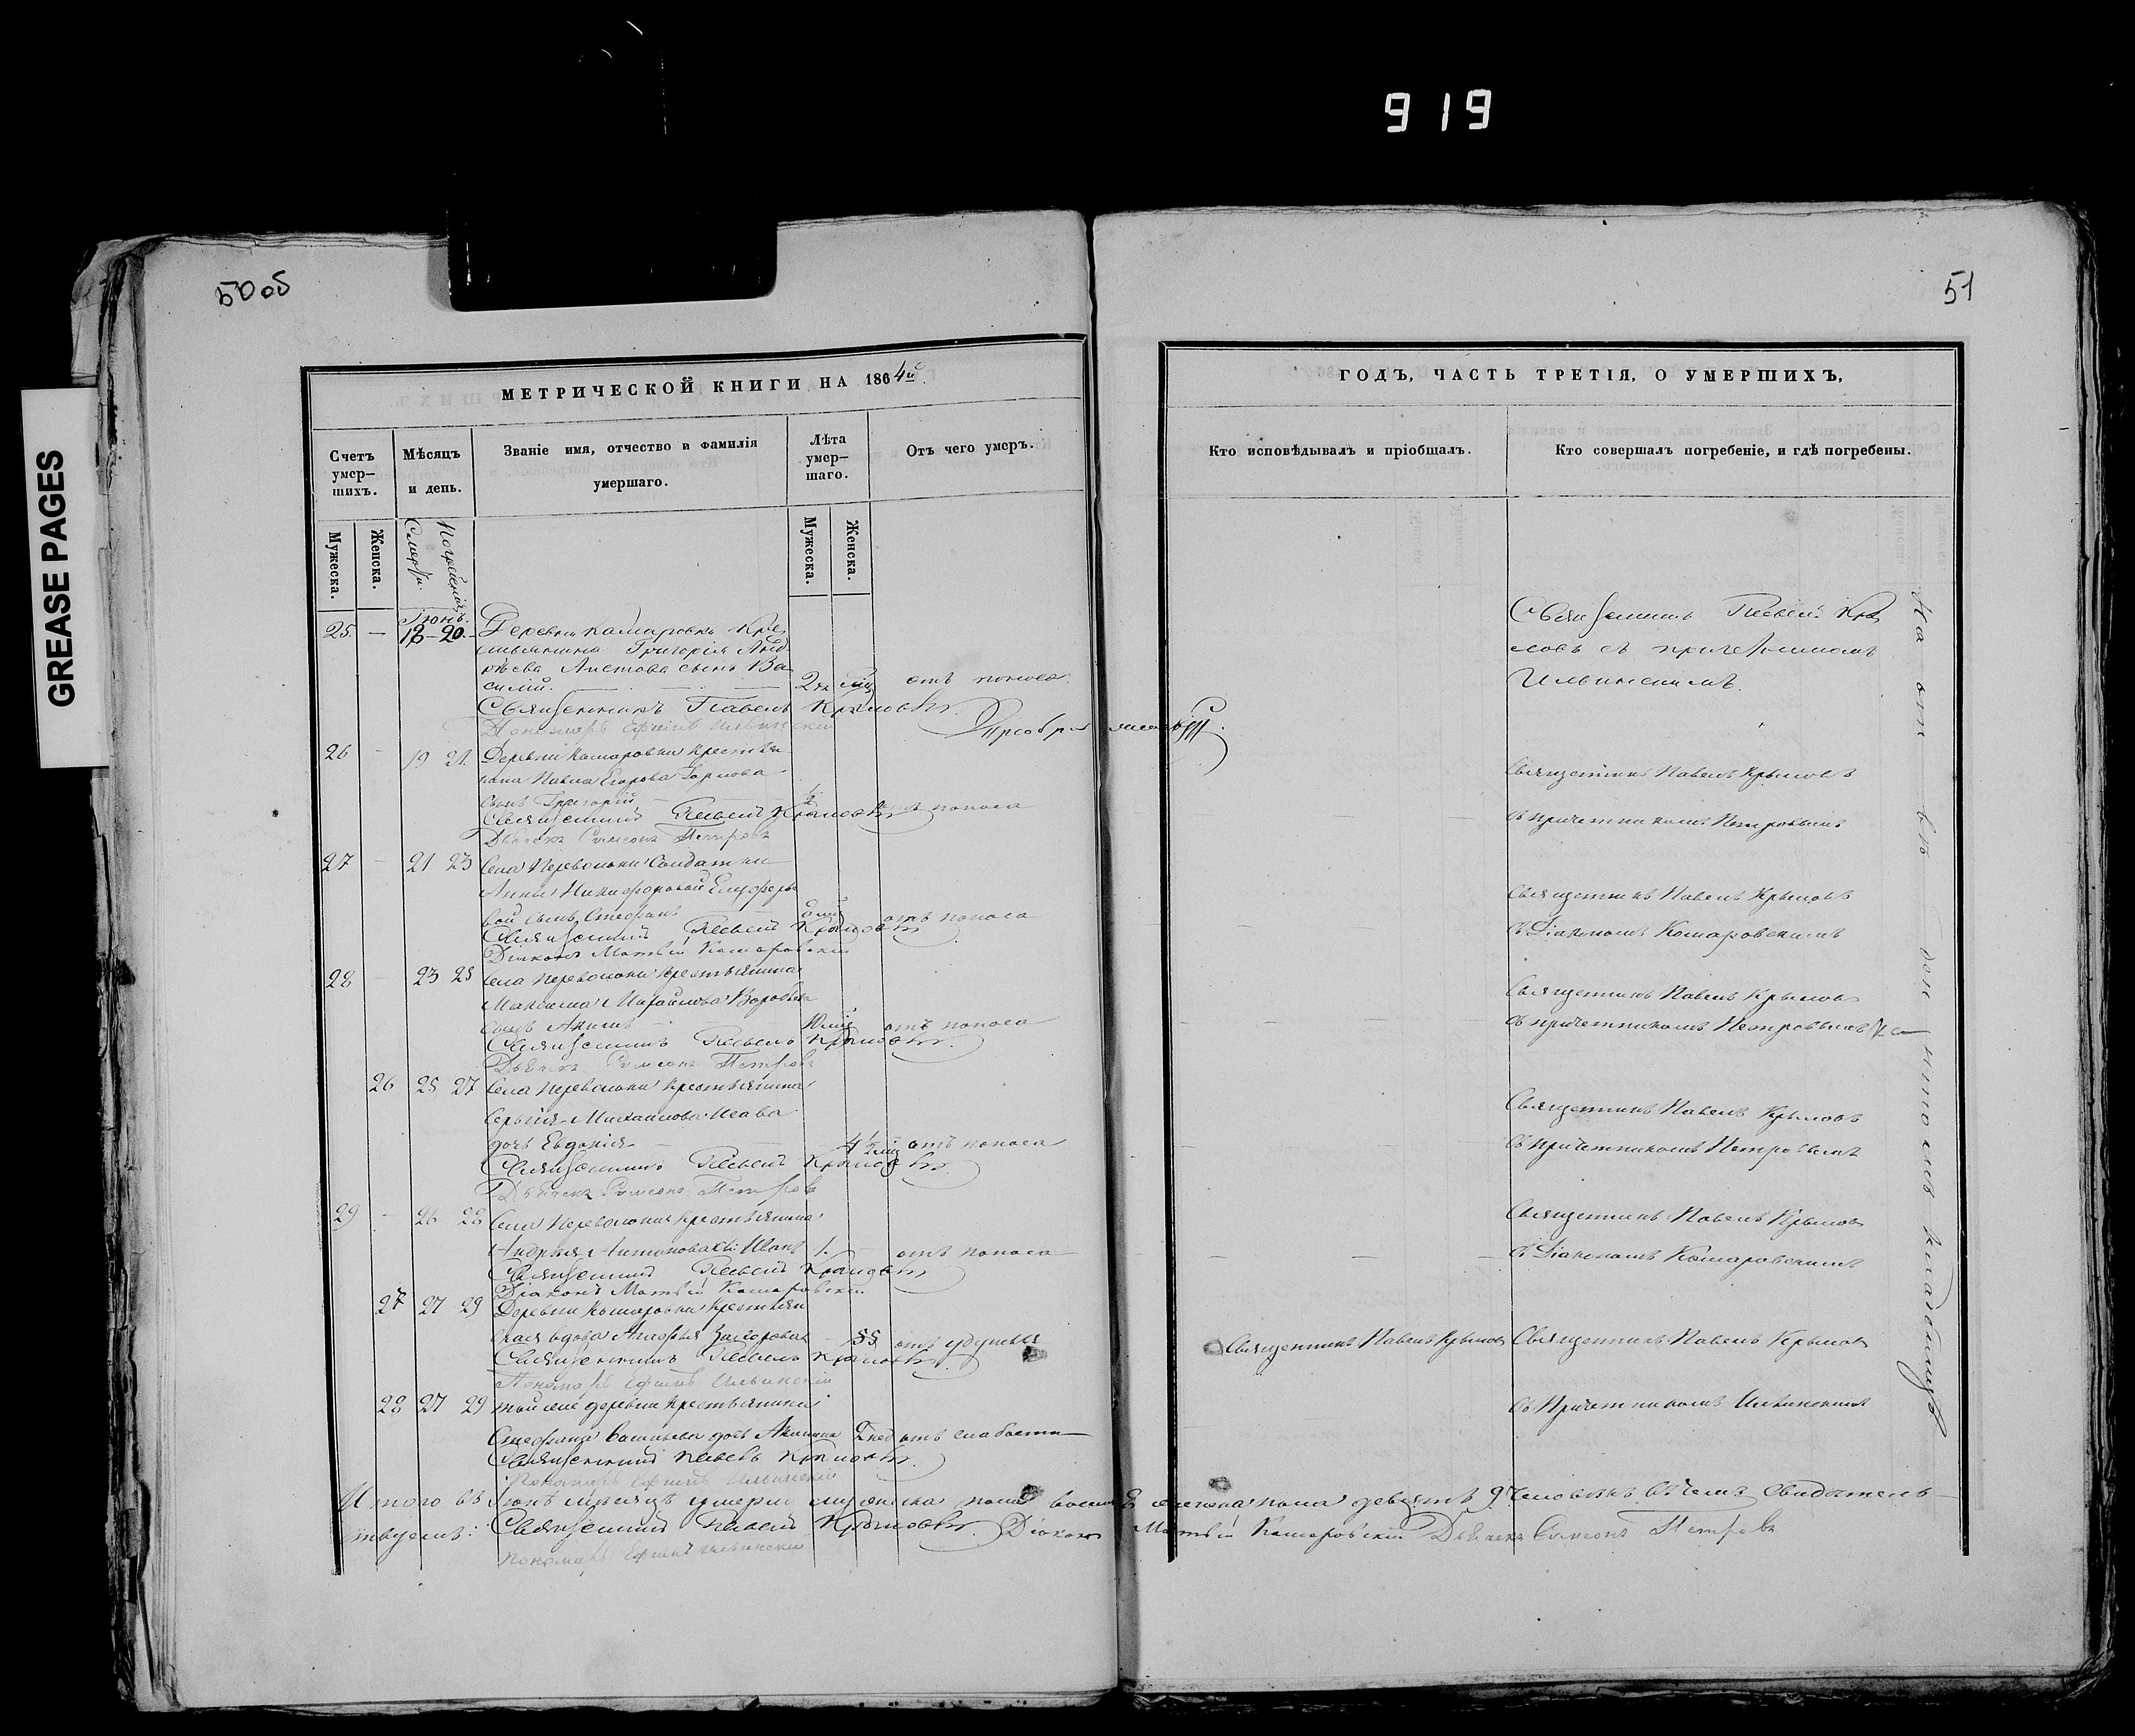 919
GREASE PAGES
50об
МЕТРИЧЕСКОЙ КНИГИ НА 1864й
Счетъ умер-шихъ.
Мѣсяцъ и день.
Званіе имя, отчество и фамилія умершаго.
Лѣта умер-шаго.
Отъ чего умеръ.
Мужеска.
Женска.
Смерти.
Погребенія.
Мужеска.
Женска.
Іюнь.
25. — 18 - 20. Деревни Камаровки Кре
стьянина Григорія Анд
рѣева Листова сынъ Ва
силій. отъ поноса.
Священникъ Павелъ Крыловъ.
Пономарь Ефимъ Ильинскій
26 - 19 21. Деревни Комаровки крестья
нина Павла Егорова
сынъ Григорій — отъ поноса
Священникъ Павелъ Крыловъ
Дьячекъ Симеонъ Петровъ
27 - 21 23 Села Переволоки Солдатки
Анны Никифоровой
вой сынъ Стефанъ отъ поноса
Священникъ Павелъ Крыловъ
Діаконъ Матвій Комаровскій
28 - 23 25 Села Переволоки крестьянина
Максима Михайлова Воробьева
сынъ Акимъ отъ поноса
Священникъ Павелъ Крыловъ.
Дьячекъ Симеонъ Петровъ
26 25 27 Села Переволоки крестьянина
Сергія Михайлова Исава
дочь Евдокія — 4 1/2 мц отъ поноса
Священникъ Павелъ Крыловъ.
Дьячекъ Симеонъ Петровъ
29 - 26 28 Села Переволоки крестьянина
Андрея Антонова Иванъ 1. — отъ поноса
Священникъ Павелъ Крыловъ
Діаконъ Матвій Комаровскій
27 27 29 Деревни Комаровки крестьян
ская вдова 55 отъ удушья
Священникъ Павелъ Крыловъ.
Пономарь Ефимъ Ильинскій
28 27 29 той же деревни крестьянина
Стефана Васильева дочь Акилина 2 нед отъ слабости
Священникъ Павелъ Крыловъ.
Пономарь Ефимъ Ильинскій
Итого въ Іюнѣ мѣсяцѣ умерло мужеска пола восемь 8 женска пола девять 9 Человѣкъ въ чемъ свидѣтель
ствуемъ: Священникъ Павелъ Крыловъ. Діаконъ Матвій Комаровскій Дьячекъ Симеонъ Петровъ
Пономарь Ефимъ Ильинскій
51
ГОДЪ, ЧАСТЬ ТРЕТІЯ, О УМЕРШИХЪ.
Кто исповѣдывалъ и пріобщалъ.
Кто совершалъ погребеніе, и гдѣ погребены.
Священникъ Павелъ Кры
ловъ съ причетникомъ
Ильинскимъ.
Священникъ Павелъ Крыловъ
съ причетникомъ Петровымъ
Священникъ Павелъ Крыловъ
съ Діакономъ Комаровскимъ
Священникъ Павелъ Крыловъ
съ причетникомъ Петровымъ
Священникъ Павелъ Крыловъ
съ причетникомъ Петровымъ
Священникъ Павелъ Крыловъ
съ Діакономъ Комаровскимъ
Священникъ Павелъ Крыловъ Священникъ Павелъ Крыловъ
съ Причетникомъ Ильинскимъ
кладбищѣ